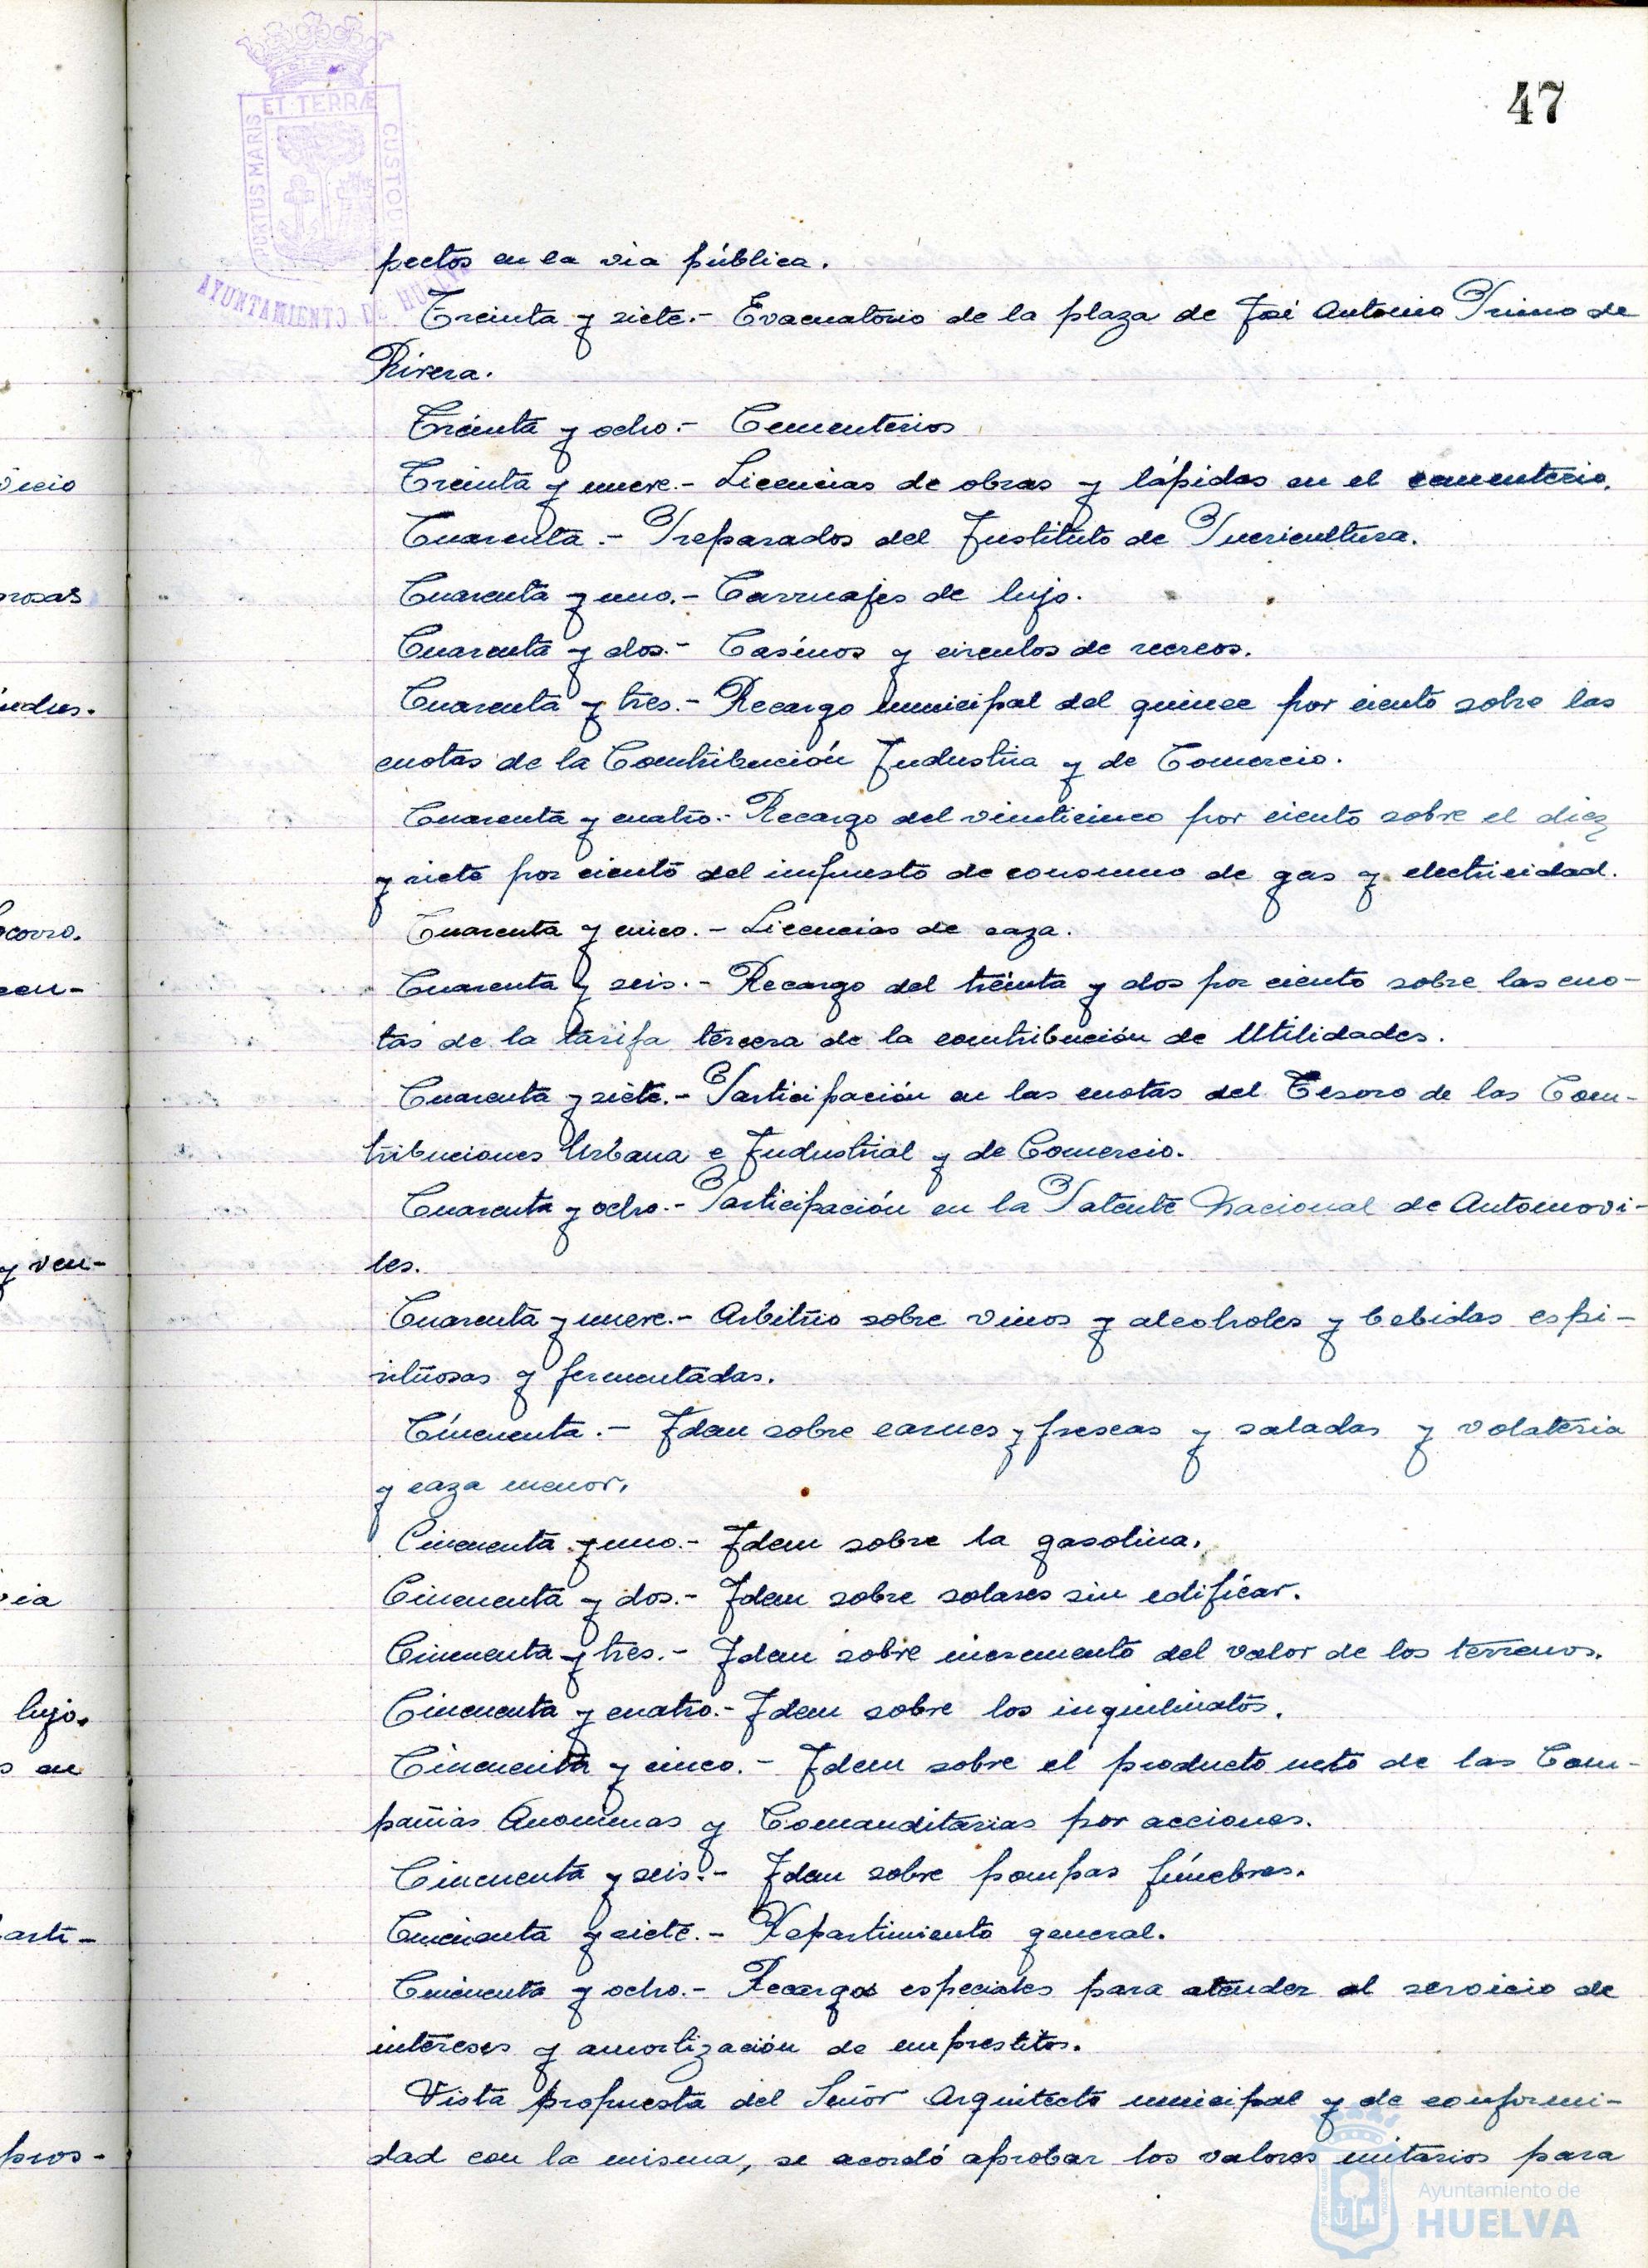 47
PORTUS MARIS ET TERRÆ CUSTODIA
AYUNTAMIENTO DE HUELVA
pectos en la via pública.
Treinta y siete.- Evacuatorio de la plaza de José Antonio Primo de
Rivera.
Treinta y ocho.- Cementerios
Treinta y nueve.- Licencias de obras y lápidas en el cementerio.
Cuarenta.- Preparados del Instituto de Puericultura.
Cuarenta y uno.- Carruajes de lujo.
Cuarenta y dos.- Casinos y circulos de recreos.
Cuarenta y tres.- Recargo municipal del quince por ciento sobre las
cuotas de la Contribución Industria y de Comercio.
Cuarenta y cuatro.- Recargo del vinticinco por ciento sobre el diez
y siete por ciento del impuesto de consumo de gas y electricidad.
Cuarenta y cinco.- Licencias de caza.
Cuarenta y seis.- Recargo del treinta y dos por ciento sobre las cuo-
tas de la tarifa tercera de la contribución de Utilidades.
Cuarenta y siete.- Participación en las cuotas del Tesoro de las Con-
tribuciones Urbana e Industrial y de Comercio.
Cuarenta y ocho.- Participación en la Patente Nacional de Automovi-
les.
Cuarenta y nueve.- Arbitrio sobre vinos y alcoholes y bebidas espi-
rituosas y fermentadas.
Cincuenta.- Idem sobre carnes y frescas y saladas y volateria
y caza menor.
Cincuenta y uno.- Idem sobre la gasolina.
Cincuenta y dos.- Idem sobre solares sin edificar.
Cincuenta y tres.- Idem sobre incremento del valor de los terrenos.
Cincuenta y cuatro.- Idem sobre los inquilinatos.
Cincuenta y cinco.- Idem sobre el producto neto de las Com-
pañias Anonimas y Comanditarias por acciones.
Cincuenta y seis.- Idem sobre pompas fúnebres.
Cincuenta y siete.- Repartimiento general.
Cincuenta y ocho.- Recargos especiales para atender al servicio de
intereses y amortización de emprestitos.
Vista propuesta del Señor Arquitecto municipal y de conformi-
dad con la misma, se acordó aprobar los valores unitarios para
Ayuntamiento de
HUELVA